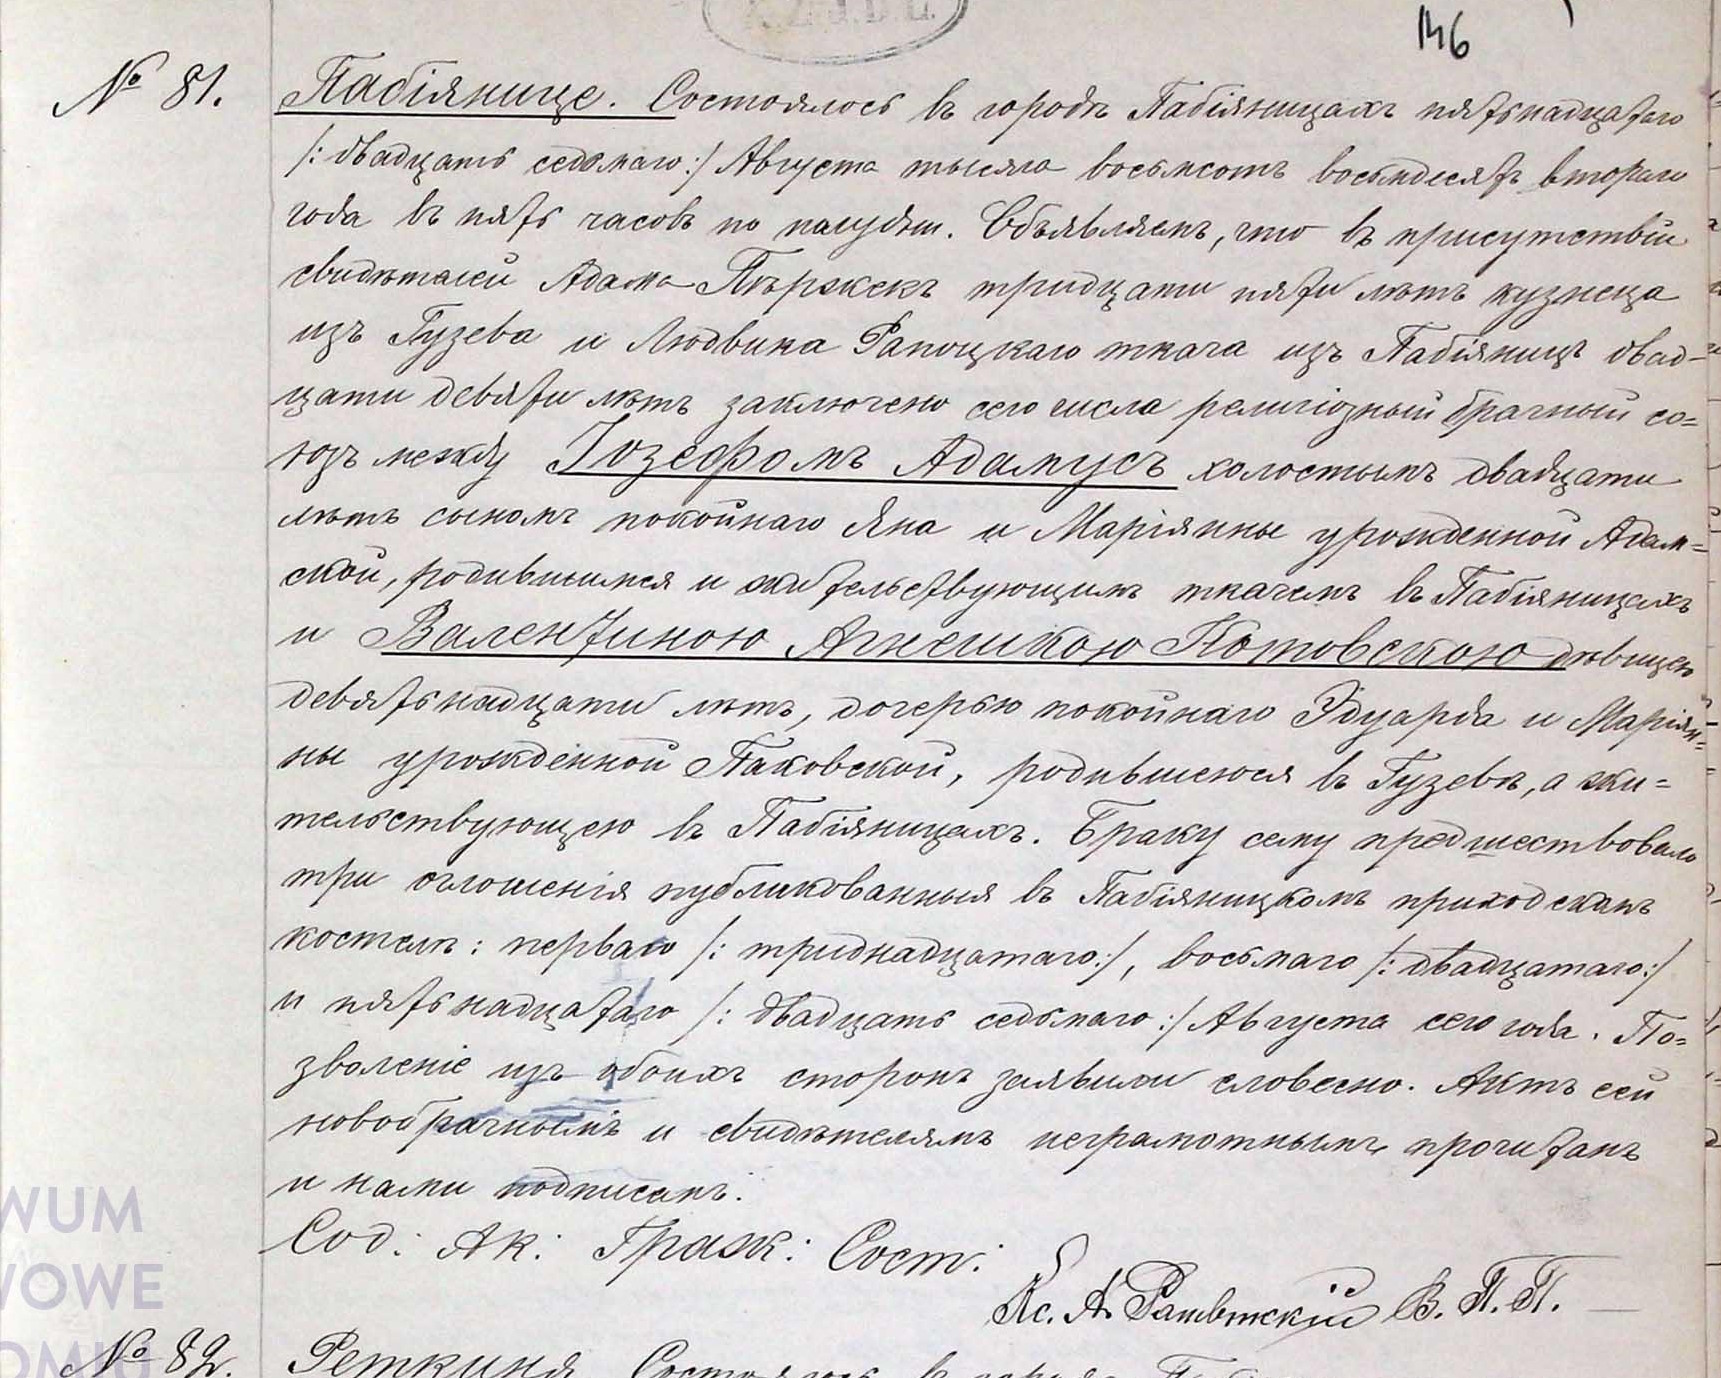 146
№ 81.
Пабіянице. Состоялось въ городѣ Пабіяницахъ пятьнадцатаго
/: двадцать седьмаго :/ Августа тысяча восьмсотъ восьмдесятъ втораго
года въ пять часовъ по полудни. Объявляемъ, что въ присутствіи
свидѣтелей Адама тридцати пяти лѣтъ кузнеца
изъ Гузева и Людвика Рапоцкаго ткача изъ Пабіяницъ двад-
цати девяти лѣтъ заключено сего числа религіозный брачный со=
юзъ между Іозефомъ Адамусъ холостымъ двадцати
лѣтъ сыномъ покойнаго Яна и Маріянны урожденной Адам=
ской, родившимся и жительствующимъ ткачемъ въ Пабіяницахъ
и Валентиною Агнешкою Котовскою дѣвицею
девятьнадцати лѣтъ, дочерью покойнаго Эдуарда и Маріян=
ны урожденной Паковской, родившеюся въ Гузевѣ, а жи=
тельствующею въ Пабіяницахъ. Браку сему предшествовало
три оглошенія публикованныя въ Пабіяницкомъ приходскомъ
костелѣ: перваго /: тринадцатаго :/, восьмаго /: двадцатаго :/
и пятьнадцатаго /: двадцать седьмаго :/ Августа сего года. По=
зволеніе изъ обоихъ сторонъ заявили словесно. Актъ сей
новобрачнымъ и свидѣтелямъ неграмотнымъ прочитанъ
и нами подписанъ.
Сод: Ак: Граж: Сост:
Кс. А. В. П. П.
№ 82.
Реткиня. Состоялось въ городѣ
WUM
WOWE